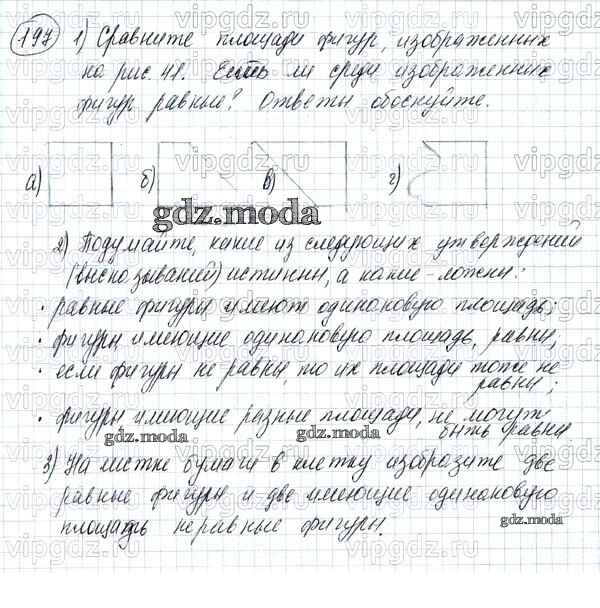 197 1) Сравните площади фигур, изображенных
на рис. 41. Есть ли среди изображенных
фигур равные? Ответы обоснуйте.
а) б) в) г)
gdz.moda
2) Подумайте, какие из следующих утверждений
(высказываний) истинны, а какие - ложны:
· равные фигуры имеют одинаковую площадь;
· фигуры имеющие одинаковую площадь, равны;
· если фигуры не равны, то их площади тоже не
равны;
· фигуры имеющие разные площади, не могут
быть равны.
gdz.moda gdz.moda
3) На листке бумаги в клетку изобразите две
равные фигуры и две имеющие одинаковую
площадь неравные фигуры.
gdz.moda
vipgdz.ru